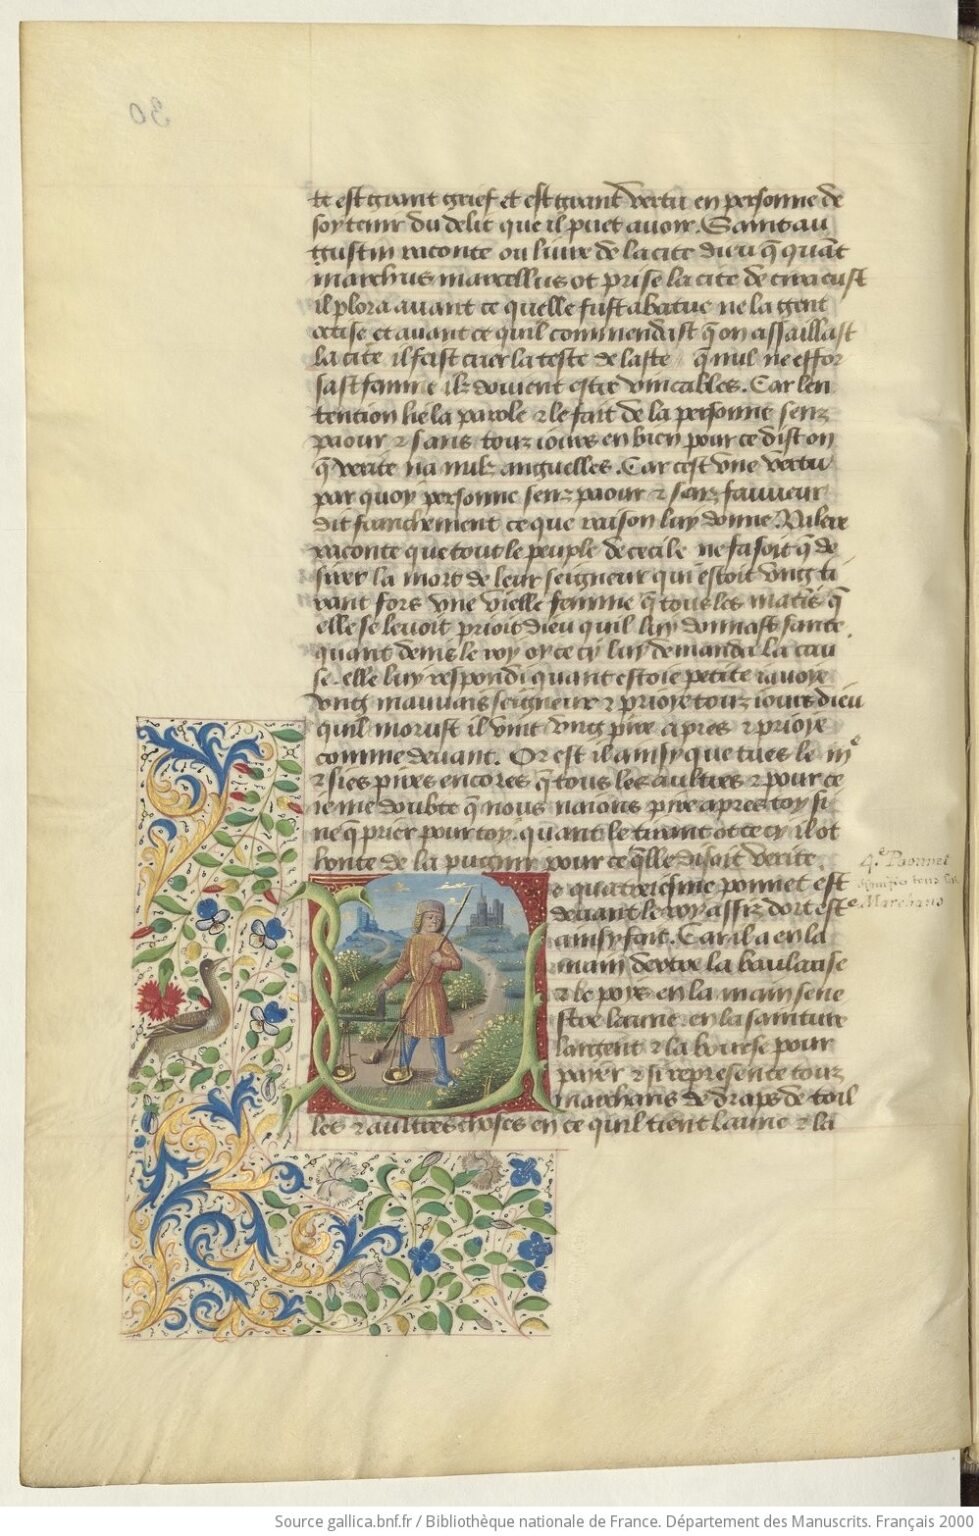 30
te est grant grief et est grant vertu en personne de
soy tenir du delit que il puet auoir. Saint au
gustin raconte ou liure de la cite dieu q̄ quāt
marchus marcellus ot prise la cite de ciracust
il plora auant ce quelle fust abatue ne la gent
ocise et auant ce quil commendast q̄ on assaillast
la cite il fist crier la teste de laste q̄ nul ne effor
sast femme ilz doiuent estre veritables. Car len
tention lie la parole et le fait de la personne senz
paour et sans touz iours en bien pour ce dist on
q̄ verite na nulz anguelles. Car cest vne vertu
par quoy personne senz paour et senz faueur
dit franchement ce que raison luy donne. Valere
raconte que tout le peuple de cecile ne fasoit q̄ de
sirer la mort de leur seigneur qui estoit vng ti
rant fors vne vielle femme q̄ tous les matīs q̄
elle se leuoit prioit dieu quil luy donnast sante.
quant denis le roy oy ce cy luy demanda la cau
se. elle luy respondi quant estoie petite iauoye
vng mauuais seigneur et prioye touz iours dieu
quil morust il vint vng pire apres et prioye
comme deuant. Or est il ainsy que tu es le iijᵉ
et sies pires encores q̄ tous les aultres et pour ce
ie me doubte q̄ nous naions pire apres toy si
ne q̄ prier pour toy. quant le tirant ot ce cy il ot
honte de la pugnir pour ce q̄lle disoit verite.
e quatreiesme ponnet est
deuant le roy assiz dort est
ainsy fait. Car il a en la
main dextre la baulance
et le poys en la main sene
stre laune en la sainture
largent et la bourse pour
payer et si represente touz
marchans de draps de toil
les et aultres choses en ce quil tient laune et la
4ᵉ Paonnet
signifie tous les
Marchans
Source gallica.bnf.fr / Bibliothèque nationale de France. Département des Manuscrits. Français 2000